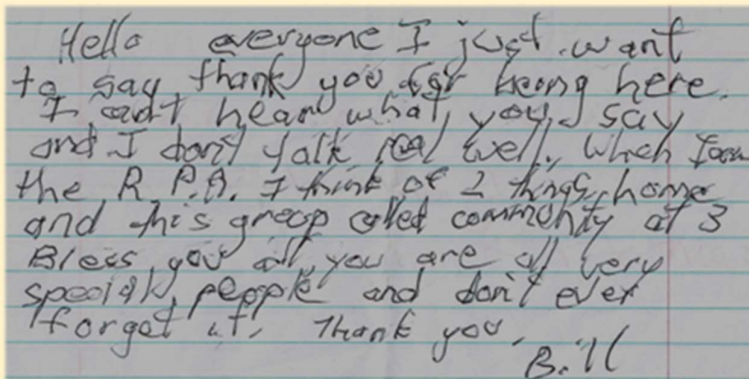 Hello everyone I just want
to say thank you for being here.
I can't hear what you say
and I don't talk real well. When I
the R.P.A. I think of 2 things, home
and this group called community at 3
Bless you all, you are all very
special people and don't ever
forget it, Thank you.
Bill